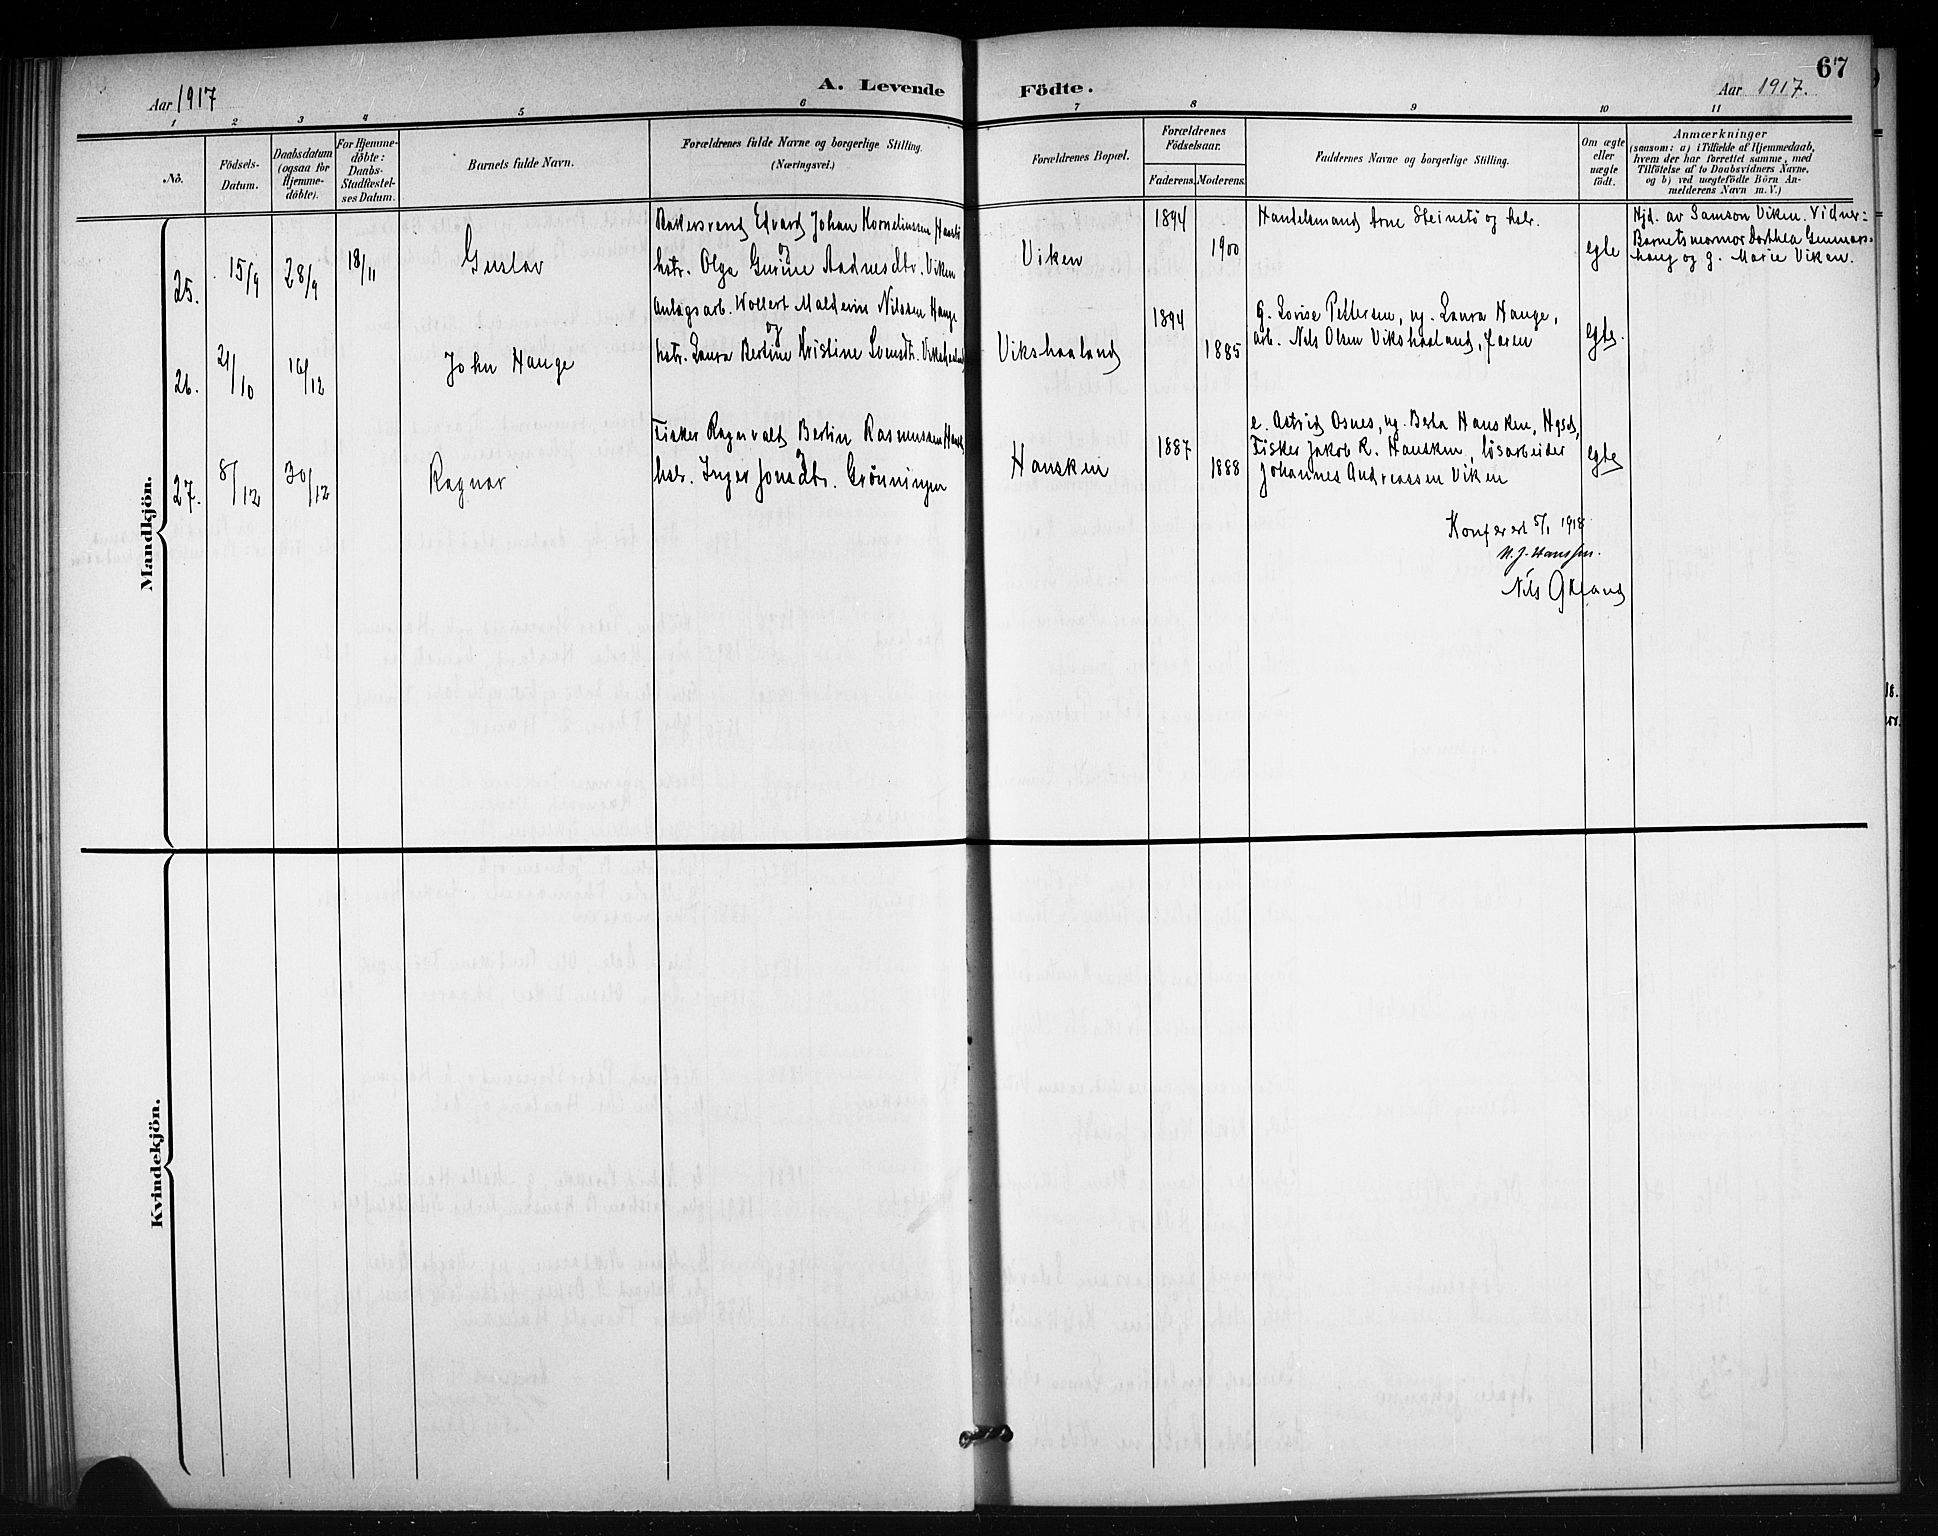 67
Aar 1917
A. Levende
Födte.
Aar 1917.
1 2 3 4 5 6 7 8 9 10 11
No.
Födsels-
Datum.
Daabsdatum
(ogsaa for
Hjemme-
döbte).
For Hjemme-
döbte:
Daabs-
Stadfæstel-
ses Datum.
Barnets fulde Navn.
Forældrenes fulde Navne og borgerlige Stilling.
(Næringsvei.)
Forældrenes Bopæl.
Forældrenes
Födselsaar.
Faderens. Moderens.
Faddernes Navne og borgerlige Stilling.
Om ægte
eller
uægte
födt.
Anmærkninger
(saasom: a) i Tilfælde af Hjemmedaab,
hvem der har forrettet samme, med
Tilföielse af to Daabsvidners Navne,
og b) ved uægtefödte Börn An-
melderens Navn m. V.)
Mandkjön.
25.
15/9
28/9
18/11
Gustav
Bakersvend Edvard Johan Korneliussen
og
hstr. Olga Gurine Aadnesdtr. Viken
Viken
1894
1900
Handelsmand Arne Steinstö og hstr.
egte
Hjd. av Samson Viken. Vidner:
Barnets mormor Dorthea Gunnars-
haug og g. Marie Viken.
26.
21/10
16/12
John Hauge
Anlægsarb. Wollert Maldevin Nilssen Hauge
og
hstr. Laura Bertine Kristine Svendtr.
Vikshaaland
1894
1885
G. Lovise Pettersen, ug. Laura Hauge,
arb. Nels Olsen Vikshaaland, faren
egte.
27.
8/12
30/12
Ragnar
Fisker Ragnvald Bertin Rasmussen
og
hstr. Inger Jonsdtr. Grönningen
Hausken
1887
1888
e. Astrid Osnes, ug. Berta Hausken, Hgsd,
Fisker Jakob R. Hausken, lösarbeider
Johannes Andreassen Viken
egte
Konferert 5/1 1918
N. J. Hanssen.
Nils
Kvindekjön.